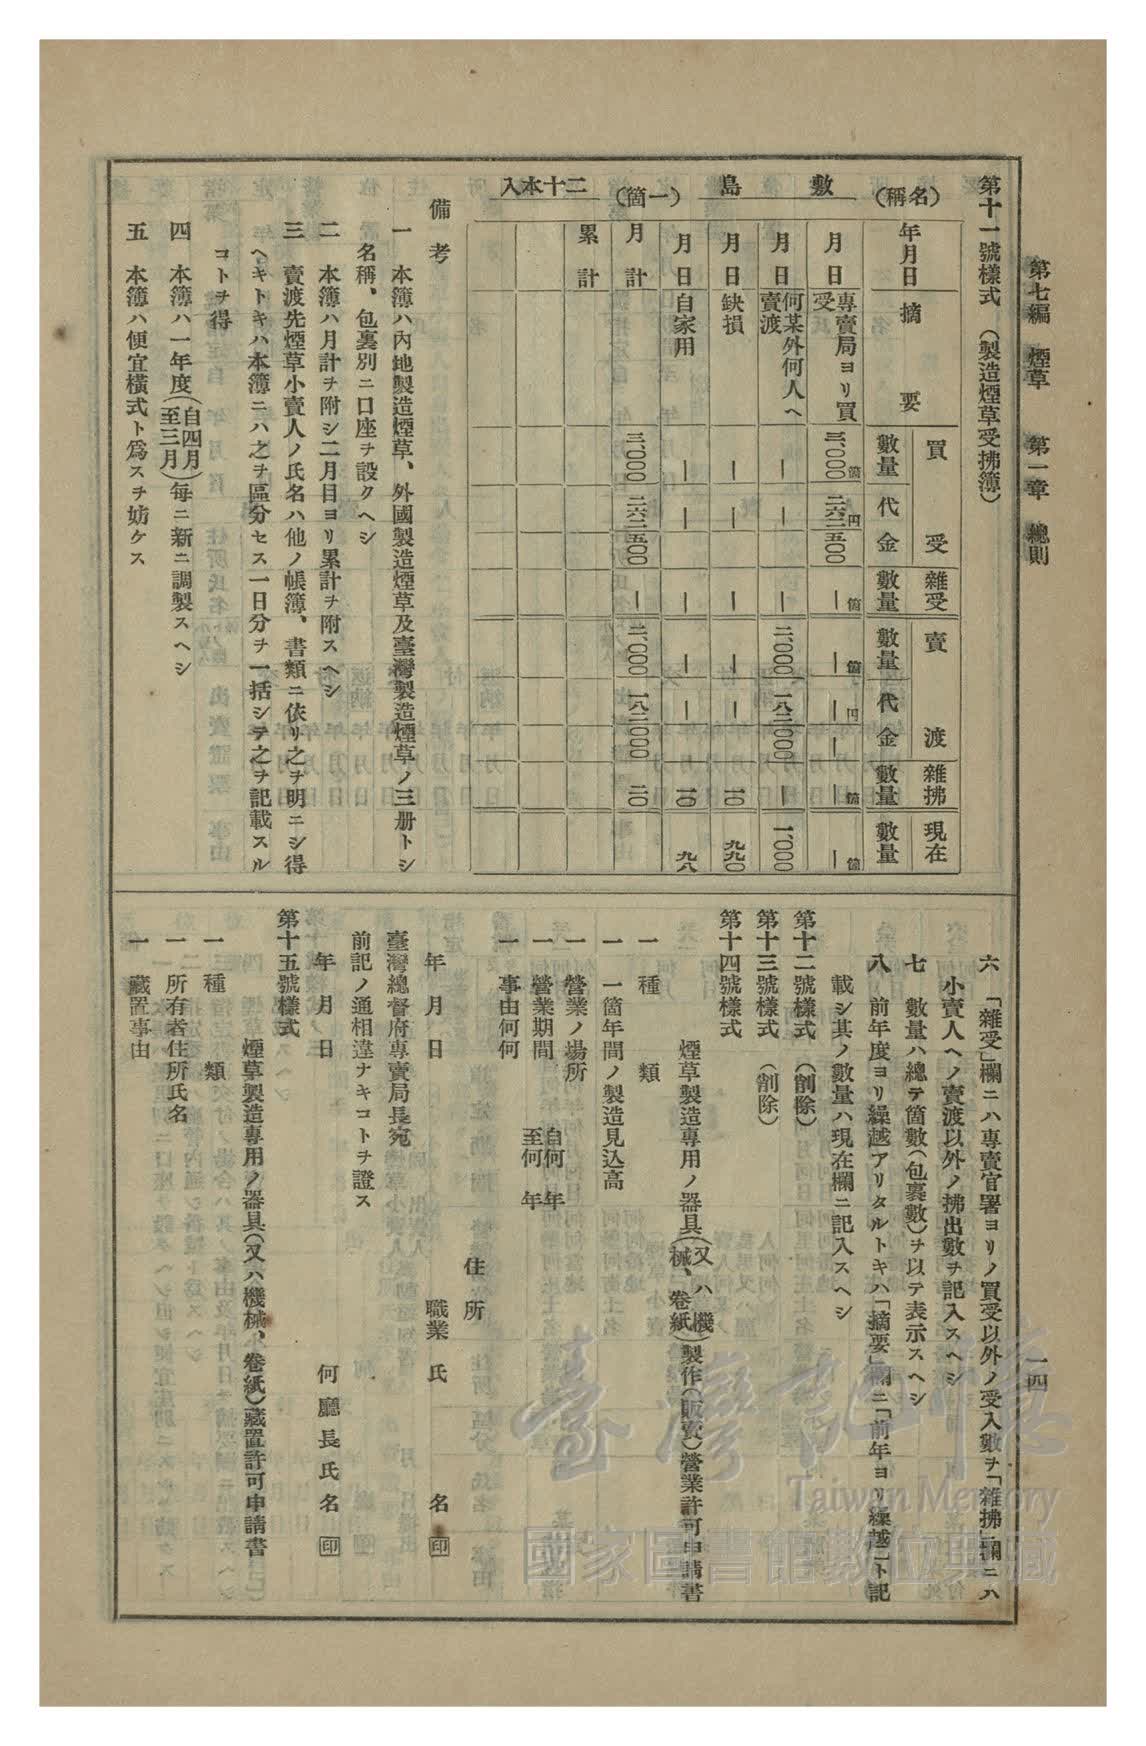 第七編　煙草　　第一章　總則
一四
第十一號樣式　（製造煙草受拂簿）
（名稱）　敷　島　（一箇）　二十本入
年月日　摘　要　買　受　數量　代　金　雜受　數量　賣　渡　數量　代　金　雜拂　數量　現在　數量
月　日　專賣局ヨリ買受　三、〇〇〇箇　二六二五〇〇円　｜箇　｜箇　｜円　｜　｜箇　｜箇
月　日　何某外何人ヘ賣渡　｜　｜　｜　二、〇〇〇　一八二〇〇〇　｜　一、〇〇〇
月　日　缺損　｜　｜　｜　｜　｜　一〇　九九〇
月　日　自家用　｜　｜　｜　｜　｜　一〇　九八
月　計　三、〇〇〇　二六二五〇〇　｜　二、〇〇〇　一八二〇〇〇　二〇
累　計
備　考
一　本簿ハ內地製造煙草、外國製造煙草及臺灣製造煙草ノ三册トシ
名稱、包裹別ニ口座ヲ設クヘシ
二　本簿ハ月計ヲ附シ二月目ヨリ累計ヲ附スヘシ
三　賣渡先煙草小賣人ノ氏名ハ他ノ帳簿、書類ニ依リ之ヲ明ニシ得
ヘキトキハ本簿ニハ之ヲ區分セス一日分ヲ一括シテ之ヲ記載スル
コトヲ得
四　本簿ハ一年度（自四月至三月）每ニ新ニ調製スヘシ
五　本簿ハ便宜橫式ト爲スヲ妨ケス
六　「雜受」欄ニハ專賣官署ヨリノ買受以外ノ受入數ヲ「雜拂」欄ニハ
小賣人ヘノ賣渡以外ノ拂出數ヲ記入スヘシ
七　數量ハ總テ箇數（包裹數）ヲ以テ表示スヘシ
八　前年度ヨリ繰越アリタルトキハ「摘要」欄ニ「前年ヨリ繰越」ト記
載シ其ノ數量ハ現在欄ニ記入スヘシ
第十二號樣式　（削除）
第十三號樣式　（削除）
第十四號樣式
煙草製造專用ノ器具（又ハ機械、卷紙）製作（販賣）營業許可申請書
一　種　　類
一　一箇年間ノ製造見込高
一　營業ノ場所
一　營業期間　自何　年　至何　年
一　事由何何
住　所
年　月　日　職業　氏　名　印
臺灣總督府專賣局長宛
前記ノ通相違ナキコトヲ證ス
年　月　日　何廳長氏名　印
第十五號樣式
煙草製造專用ノ器具（又ハ機械、卷紙）藏置許可申請書
一　種　　類
一　所有者住所氏名
一　藏置事由
臺灣記憶
Taiwan Memory
國家圖書館數位典藏